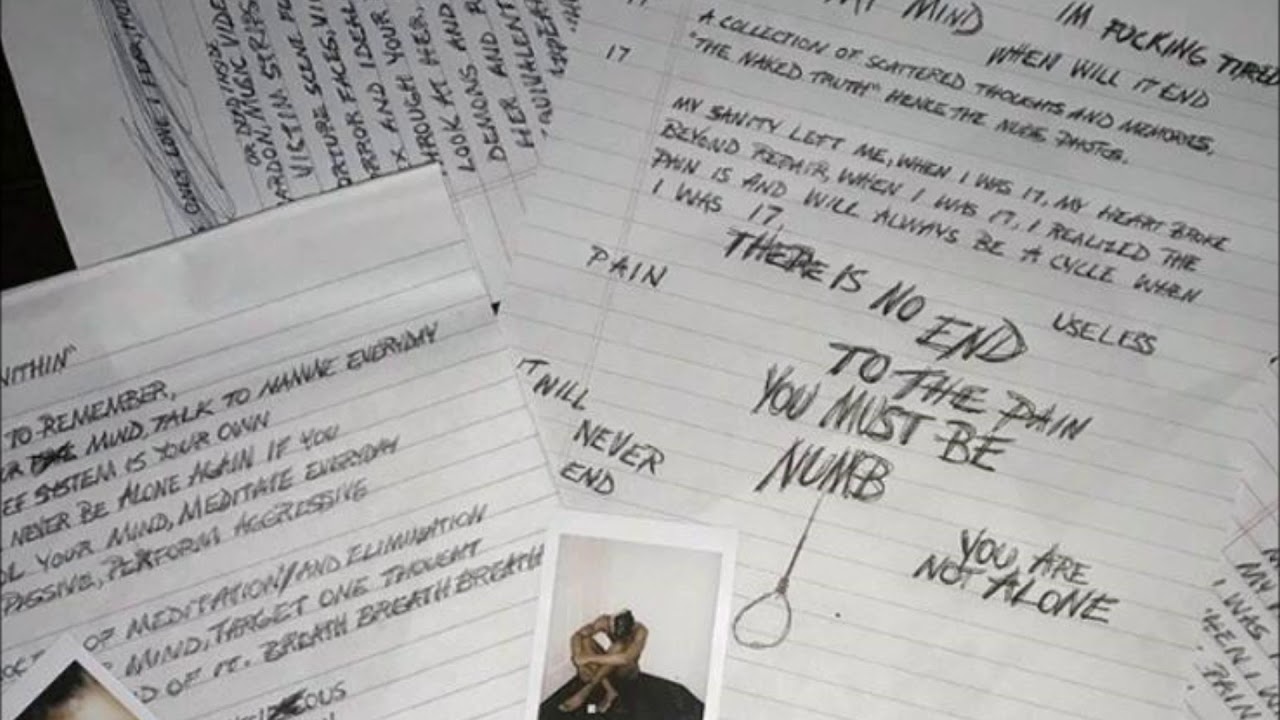 ONES LOVE I
OR DONT MUSIC VIDE
VICTIM SCENE
X AND YOUR
LOOK AT AND
DEMONS AND
HER AND
MIND
IM FUCKING TIRED
WHEN WILL IT END
17
A COLLECTION OF SCATTERED THOUGHTS AND MEMORIES,
"THE NAKED TRUTH" HENCE THE NUDE PHOTOS.
MY SANITY LEFT ME, WHEN I WAS 17, MY HEART BROKE
BEYOND REPAIR, WHEN I WAS 17, I REALIZED THE
PAIN IS AND WILL ALWAYS BE A CYCLE WHEN
I WAS 17
PAIN
THERE IS NO END
USELESS
TO THE PAIN
YOU MUST BE
NUMB
IT WILL
NEVER
END
YOU ARE
NOT ALONE
WITHIN"
TO REMEMBER,
MIND, TALK TO NANUNE EVERYDAY
EF SYSTEM IS YOUR OWN
NEVER BE ALONE AGAIN IF YOU
OL YOUR MIND, MEDITATE EVERYDAY
PASSIVE, PERFORM AGGRESSIVE
OF MEDITATION/AND ELIMINATION
MIND, TARGET ONE THOUGHT
D OF IT. BREATH BREATH BREATH
OUS
MY
I WAS
PAIN